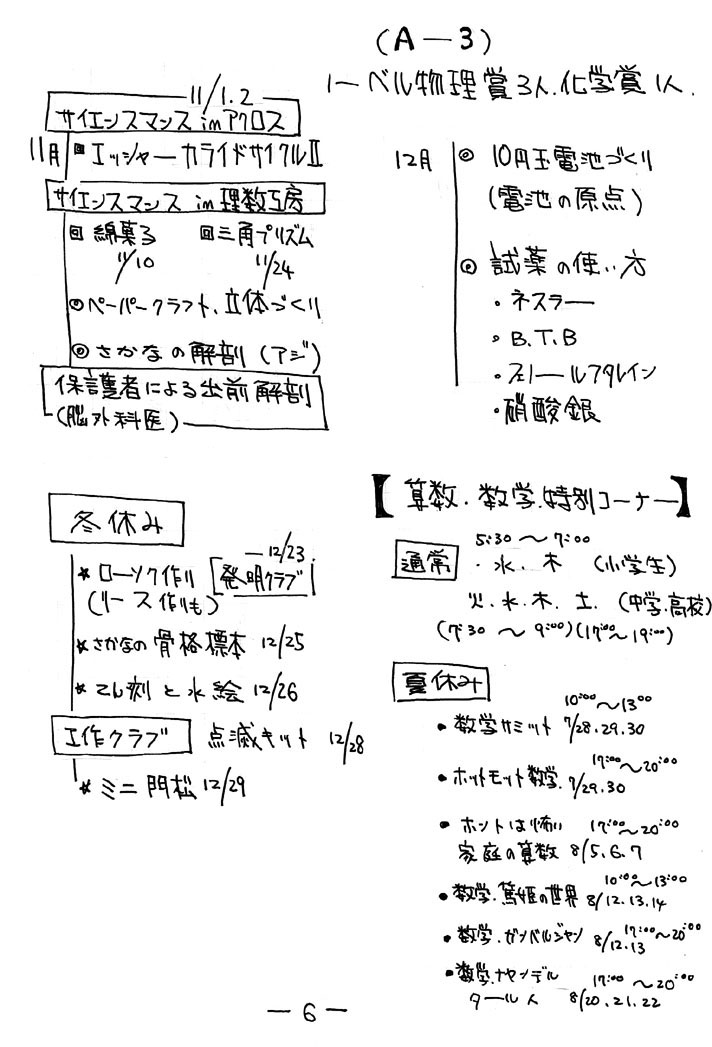 (A-3)
ノーベル物理賞3人.化学賞1人.
11/1.2
サイエンスマンス in アクロス
11月 回 エッシャーカライドサイクルⅡ
サイエンスマンス in 理数工房
回 綿菓子 回 三角プリズム
11/10 11/24
◎ペーパークラフト、立体づくり
◎さかなの解剖 (アジ)
保護者による出前解剖
(脳外科医)
12月 ◎ 10円玉電池づくり
(電池の原点)
◎ 試薬の使い方
・ネスラー
・B.T.B
・フェノールフタレイン
・硝酸銀
冬休み
12/23
★ ローソク作り [発明クラブ]
(リース作りも)
★さかなの骨格標本 12/25
★ てん刻と水絵 12/26
工作クラブ 点滅キット 12/28
★ ミニ門松 12/29
【算数.数学.特別コーナー】
5:30〜7:00
通常 ・水.木 (小学生)
火.水.木.土. (中学.高校)
(7:30〜9:00)(17:00〜19:00)
夏休み
10:00〜13:00
・数学サミット 7/28.29.30
17:00〜20:00
・ホットモット数学. 7/29.30
・ホントは怖い 17:00〜20:00
家庭の算数 8/5.6.7
10:00〜13:00
・数学.篤姫の世界 8/12.13.14
17:00〜20:00
・数学.ガンバルジャン 8/12.13
・数学.ナヤンデル 17:00〜20:00
タール人 8/20.21.22
-6-